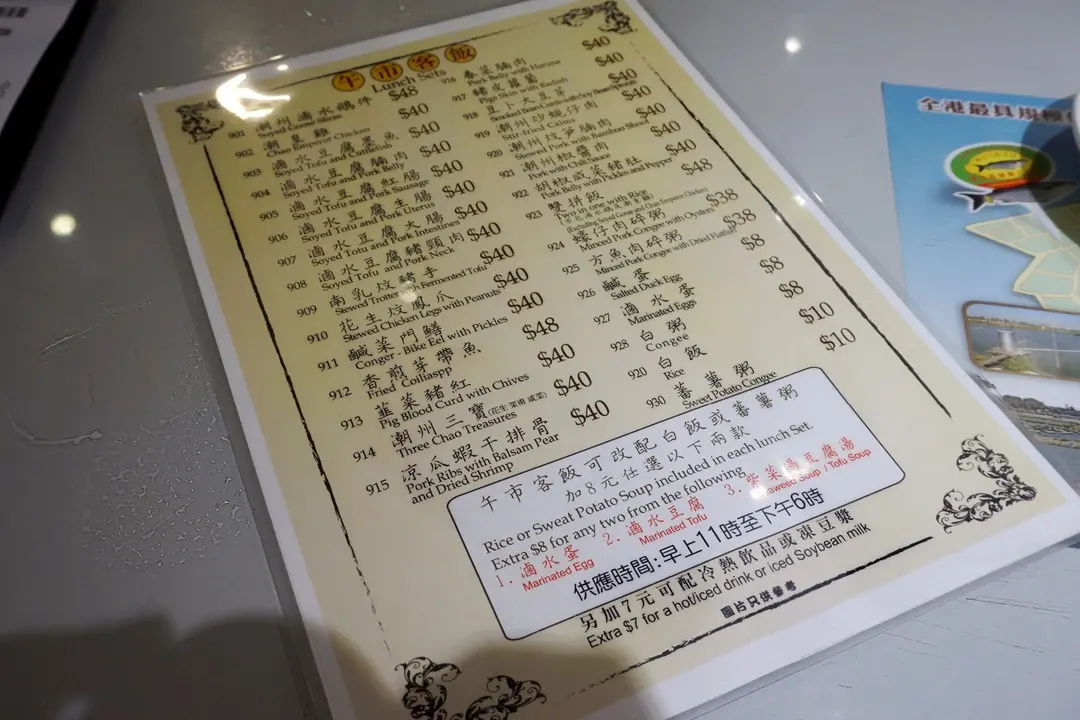 午市客飯
Lunch Sets
901 潮州滷水鵝件 $48
Soyed Goose Slices
902 潮皇雞 $40
Chao Emperor Chicken
903 滷水豆腐墨魚 $40
Soyed Tofu and Cuttlefish
904 滷水豆腐腩肉 $40
Soyed Tofu and Pork Belly
905 滷水豆腐紅腸 $40
Soyed Tofu and Pork Sausage
906 滷水豆腐生腸 $40
Soyed Tofu and Pork Uterus
907 滷水豆腐大腸 $40
Soyed Totu and Pork Intestines
908 滷水豆腐豬頸肉 $40
Soyed Tofu and Pork Neck
909 南乳炆豬手 $40
Stewed Trotter with Fermented Tofu
910 花生炆鳳爪 $40
Stewed Chicken Legs with Peanuts
911 鹹菜門鱔 $40
Conger - Bike Eel with Pickles
912 香煎芽帶魚 $48
Fried Coiliaspp
913 韮菜豬紅 $40
Pig Blood Curd with Chives
914 潮州三寶(花生 菜甫 咸菜) $40
Three Chao Treasures
915 涼瓜蝦干排骨 $40
Pork Ribs with Balsam Pear
and Dried Shrimp
916 春菜腩肉 $40
Pork Belly with
917 豬皮蘿蔔 $40
Pigs Skin with Radish
918 大豆芽 $40
919 潮州炒蠔仔肉 $40
Stir-fried
920 潮州炆笋腩肉 $40
Stewed Pork with Bamboo Shoot
921 潮州椒醬肉 $40
Pork with Chili Sauce
922 胡椒咸菜豬肚 $40
Pork Belly with Pickles and Pepper
923 雙拼飯 $48
Two in one with Rice
(Excluding Soyed Goose and Chao Emperor Chicken)
924 蠔仔肉碎粥 $38
Minced Pork Congee with Oysters
925 方魚肉碎粥 $38
Minced Pork Congee with Dried Flatfish
926 鹹蛋 $8
Salted Duck Eggs
927 滷水蛋 $8
Marinated Eggs
928 白粥 $8
Congee
920 白飯 $10
Rice
930 蕃薯粥 $10
Sweet Potato Congee
午市客飯可改配白飯或蕃薯粥
加8元任選以下兩款
Rice or Sweat Potato Soup included in each lunch Set.
Extra $8 for any two from the following
1. 滷水蛋 2. 滷水豆腐 3. 紫菜湯豆腐湯
Marinated Egg Marinated Tofu Seaweed Soup / Tofu Soup
供應時間:早上11時至下午6時
另加7元可配冷熱飲品或凍豆漿
Extra $7 for a hot/iced drink or iced Soybean milk
圖片只供參考
全港最具規模